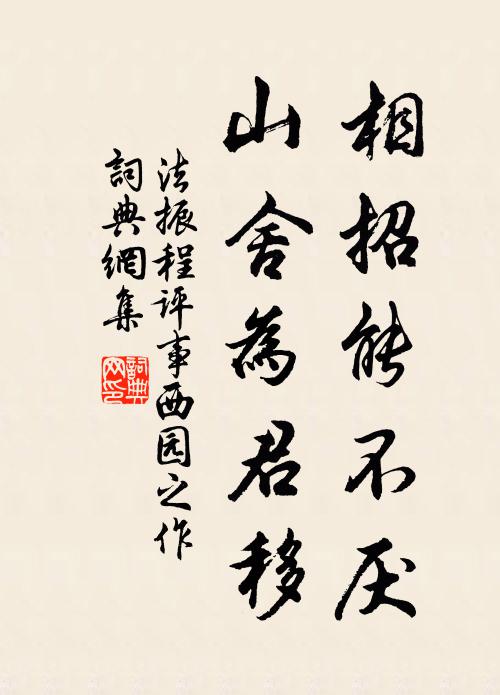 相招能不厌
山舍為君移
法振程评事西园之作
詞典網集
詞典网印